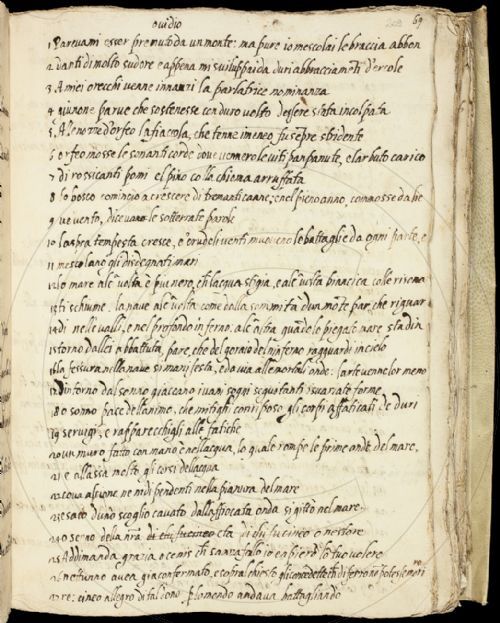 ovidio
69
1 Parevami esser premuto da un monte: ma pure io mescolai le braccia abbon
2 danti di molto sudore e appena mi sviluppai da duri abbracciamēti d'ercole
3 A miei orecchi venne innanzi la parlatrice nominanza
4 giunone parve che sostenesse con duro volto d'essere stata incolpata
5 A le nozze d'orfeo la fiaccola, che tenne imeneo fu sēpre stridente
6 orfeo mosse le sonanti corde dove vennero le viti panpanute, e l'arbuto carico
7 di rossicanti pomi el pino colla chioma arruffata
8 lo bosco comincio a crescere di tremanti canne; e nel pieno anno, commosse da lie
9 ve vento, dicevano le sotterrate parole
10 l'aspra tempesta cresce, e crudeli venti muoveno le battaglie da ogni parte, e
11 mescolano gli disdegnati mari
12 lo mare alcūa volta è piu nero, chē l'acqua stigia, e alcūa volta biancica colle risona
13 ti schiume. la nave alcūa volta come dalla sommita d'un mōte par che riguar
14 di nelle valli, e nel profondo inferno. alcūa altra quādo lo piegato mare sta din
15 torno da lei abbattuta, pare, che del gorgio de l'inferno ragguardi in cielo
16 la fessura nilla nave si manifesta, e da via alle mortali onde: l'arte venne lor meno
17 dintorno dal senno giaceano i vani sogni seguitanti isvariate forme
18 o sonno pace dell'anime. che mitighi con riposo gli corpi affaticati de duri
19 servigi, e rapparecchigli alle fatiche
20 un muro fatto con mano e nell'acqua, lo quale rompe le prime onde del mare,
21 e allassa molto gli corsi dell'acqua
22 cova alcione ne nidi pendenti nella pianura del mare
23 esaco d'uno scoglio cavato dalla fiocata onda si gittò nel mare.
24 o seno della nr̄a età di chi fu cineo o nestore
25 Addimanda grazia o cenis chi sanza fallo io empiero lo tuo volere
26 nettunno avea gia confermato, e sopra
27 re: cineo allegro di tal dono. Plomendo andava battagliando